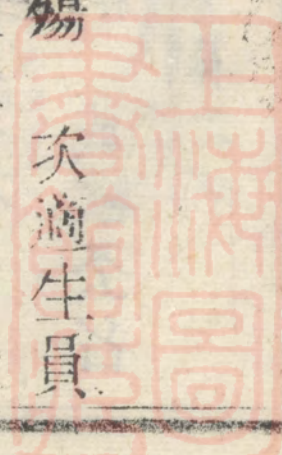 次適生員
上海圖
書館藏